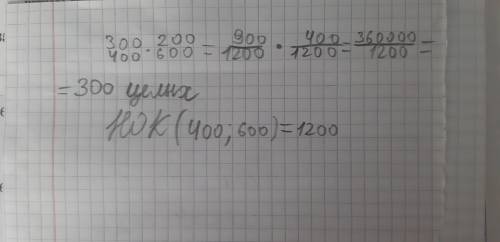 300/400 · 200/600 = 900/1200 · 400/1200 = 360000/1200 =
= 300 целых
НОК (400; 600) = 1200